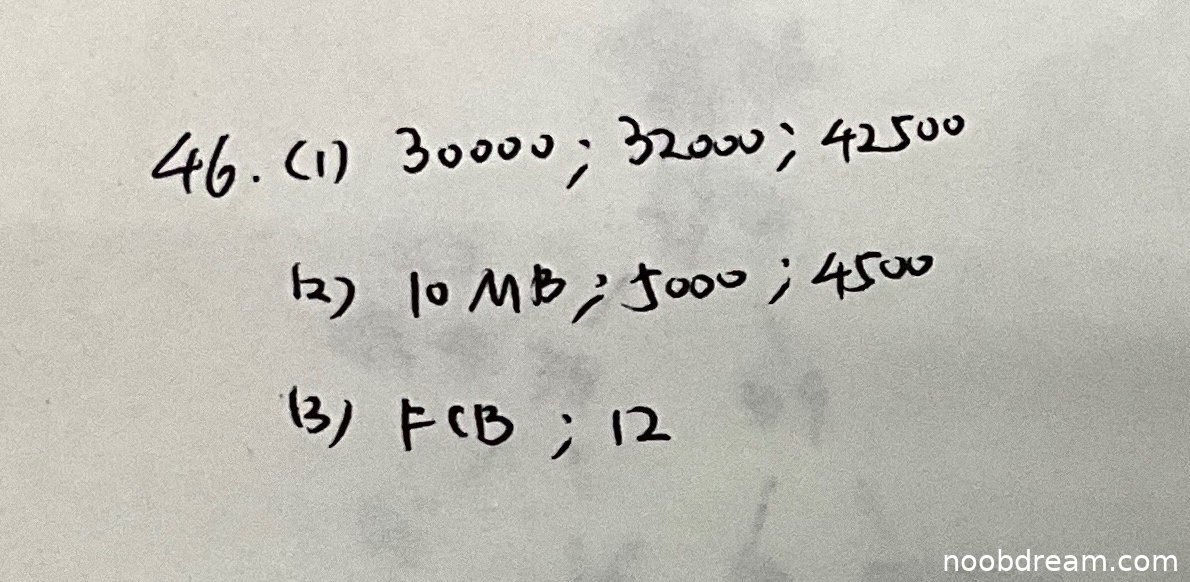 46. (1) 30000; 32000; 42500
(2) 10 MB; 5000; 4500
(3) FCB; 12
noobdream.com